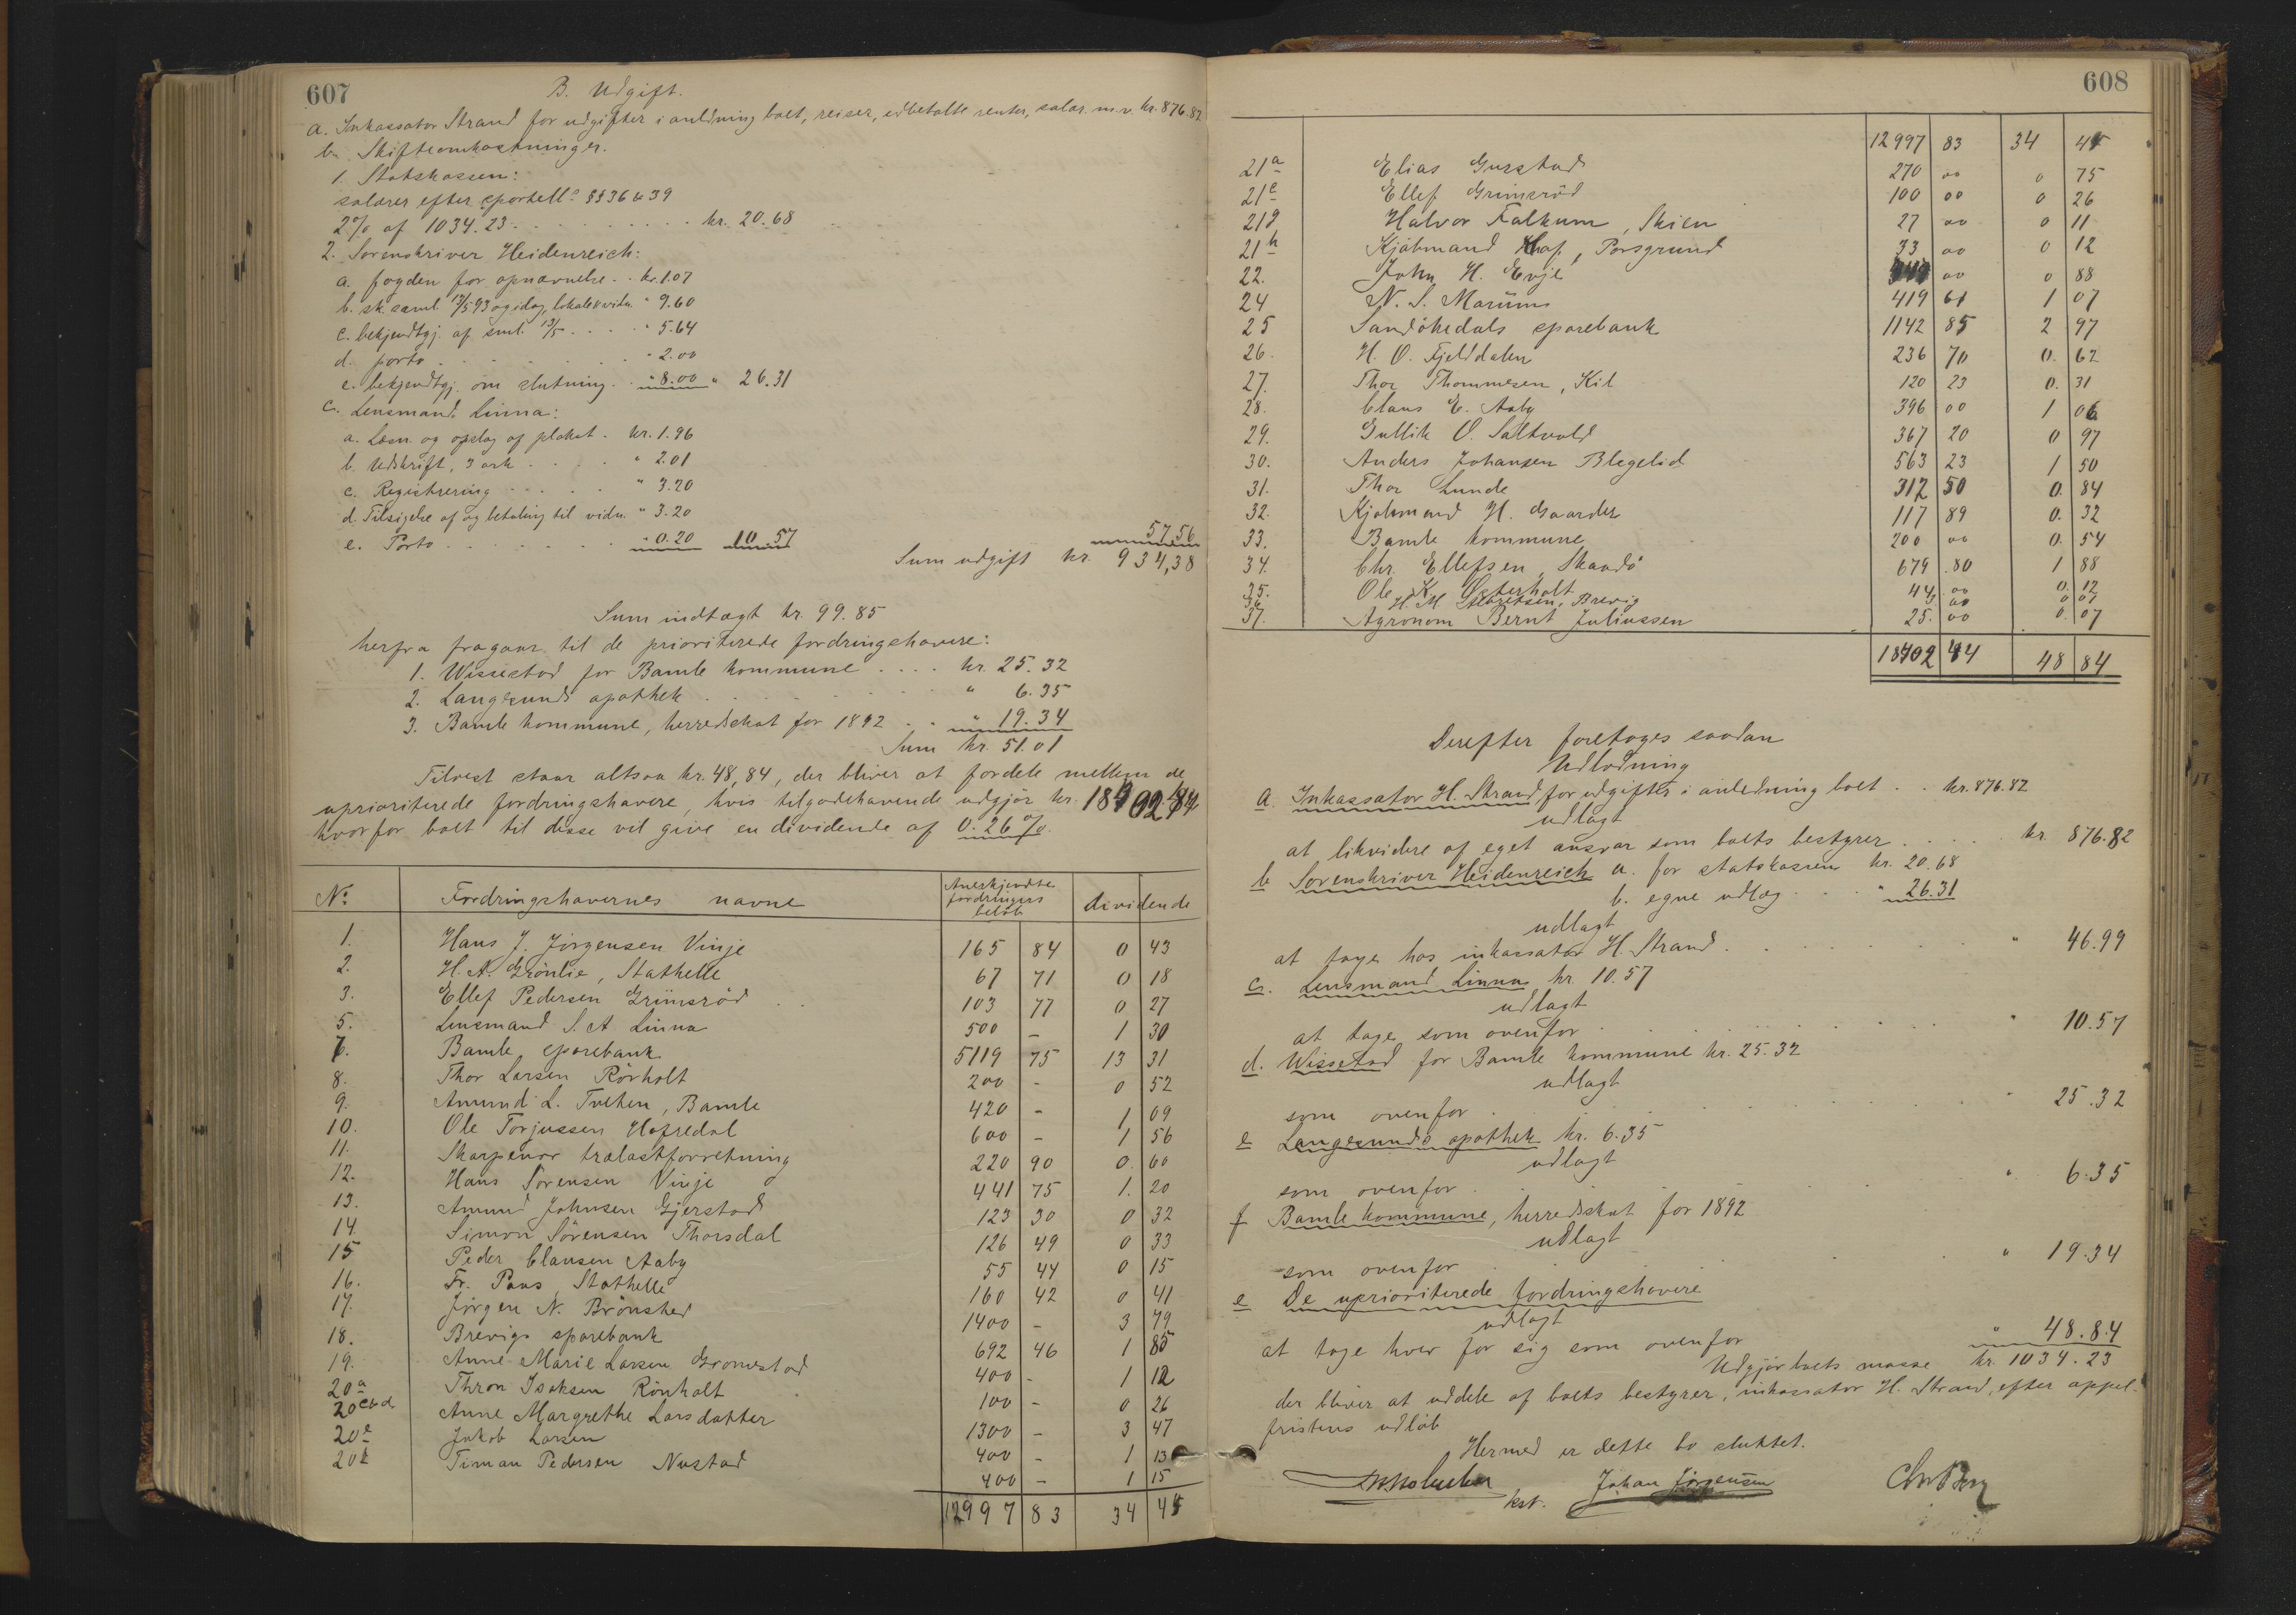 607
B. Udgift.
a. Inkassator Strand for udgifter i anledning boet, reiser, udbetalte renter, salær m.v. kr. 876.82
b. Skifteomkostninger.
1. Statskassen:
salærer efter sportell. §§ 36 & 39
2% af 1034.23 . . . . . . . . kr. 20.68
2. Sorenskriver Heidenreich:
a. fogden for opnævnelse . . kr. 1.07
b. sk. saml. 13/5 93 og idag, lokale & vidn. " 9.60
c. bekjendtgj. af saml. 13/5 . . . . " 5.64
d. porto . . . . . . . . " 2.00
e. bekjendtgj. om slutning . . " 8.00 " 26.31
c. Lensmand Linna:
a. Læsn. og opslag af plakat . kr. 1.96
b. Udskrift, 3 ark . . . . " 2.01
c. Registrering . . . . . " 3.20
d. Tilsigelse af og betaling til vidn. " 3.20
e. Porto . . . . . . . . " 0.20 10.57 57.56
Sum udgift kr. 934,38
Sum indtægt kr. 99.85
herfra fragaar til de prioriterede fordringshavere:
1. Wissestad for Bamle kommune . . . . kr. 25.32
2. Langesunds apothek . . . . . . . " 6.35
3. Bamle kommune, herredskat for 1892 . . " 19.34
Sum kr. 51.01
Tilrest staar altsaa kr. 48,84, der bliver at fordele mellem de
uprioriterede fordringshavere, hvis tilgodehavende udgjør kr. 18702 44
hvorfor boet til disse vil give en dividende af 0.26%.
No. Fordringshavernes navne Anerkjendte fordringers beløb dividende
1. Hans J. Jørgensen Vinje 165 84 0 43
2. H. A. Grönlie, Stathelle 67 71 0 18
3. Ellef Pedersen Grimsröd 103 77 0 27
5. Lensmand S. A Linna 500 – 1 30
7. Bamle sparebank 5119 75 13 31
8. Thor Larsen Rörholt 200 – 0 52
9. Amund L. Tveten, Bamle 420 – 1 09
10. Ole Torjussen Hafredal 600 – 1 56
11. Skarpenor trælastforretning 220 90 0. 60
12. Hans Sörensen Vinje 441 75 1. 20
13. Amund Johnsen Gjerstad 123 30 0 32
14. Simon Sörensen Thorsdal 126 49 0 33
15 Peder Clausen Aaby 55 44 0 15
16. Fr. Paus Stathelle 160 42 0 41
17. Jörgen N. Brönsted 1400 – 3 79
18. Brevigs sparebank 692 46 1 85
19. Anne Marie Larsen Gromstad 400 – 1 12
20a Thron Isaksen Rönholt 100 – 0 26
20c&d Anne Margrethe Larsdatter 1300 – 3 47
20e Jakob Larsen 400 – 1 13
20k Timan Pedersen Nustad 400 – 1 15
12997 83 34 45
608
12997 83 34 45
21a Elias Gurstad 270 00 0 75
21e Ellef Grimsröd 100 00 0 26
21g Halvor Falkum, Skien 27 00 0 11
21h Kjöbmand Klof, Porsgrund 33 00 0 12
22. John H. Evje 00 0 88
24 N. S. Marüms 419 61 1 07
25 Sandökedals sparebank 1142 85 2 97
26. H. O. Fjelldalen 236 70 0. 62
27. Thor Thommesen, Kil 120 23 0. 31
28. Claus E. Aaby 396 00 1 06
29. Gullik O. Saltvold 367 20 0 97
30. Anders Johansen Blegelid 563 23 1 50
31. Thor Lunde 312 50 0. 84
32. Kjøbmand H. Gaarder 117 89 0. 32
33. Bamle kommune 200 00 0. 54
34. Chr. Ellefsen, Skaadö 679 80 1 88
35. Ole K. Osterholt 44 00 0. 12
36 H. M. Mauritsen, Brevig 3. 00 0 01
37. Agronom Bernt Juliussen 25. 00 0. 07
18702 44 48 84
Derefter foretages saadan
Udlodning
a. Inkassator H. Strand for udgifter i anledning boet . . kr. 876.82
udlagt
at likvidere af eget ansvar som boets bestyrer . . . . kr. 876.82
b Sorenskriver Heidenreich a. for statskassen kr. 20.68
b. egne udlæg . . . " 26.31
udlagt
at tage hos inkassator H. Strand . . . . . . . " 46.99
c. Lensmand Linna kr. 10.57
udlagt
at tage som ovenfor . . . . . . . " 10.57
d. Wissestad for Bamle kommune kr. 25.32
udlagt
som ovenfor . . . . . . . " 25.32
e Langesunds apothek kr. 6.35
udlagt
som ovenfor . . . . . . . " 6.35
f Bamle kommune, herredskat for 1892
udlagt
som ovenfor . . . . . . . " 19.34
e De uprioriterede fordringshavere
udlagt
at tage hver for sig som ovenfor " 48.84
Udgjör boets masse kr. 1034.23
der bliver at uddele af boets bestyrer, inkassator H. Strand, efter appel-
fristens udløb
Hermed er dette bo sluttet.
kst. Johan Jörgensen